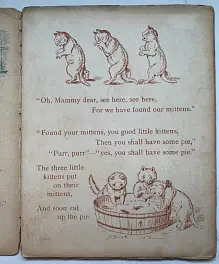 "Oh, Mammy dear, see here, see here,
For we have found our mittens."
"Found your mittens, you good little kittens,
Then you shall have some pie,"
"Purr, purr"—"yes, you shall have some pie."
The three little
kittens put
on their
mittens,
And soon eat
up the pie